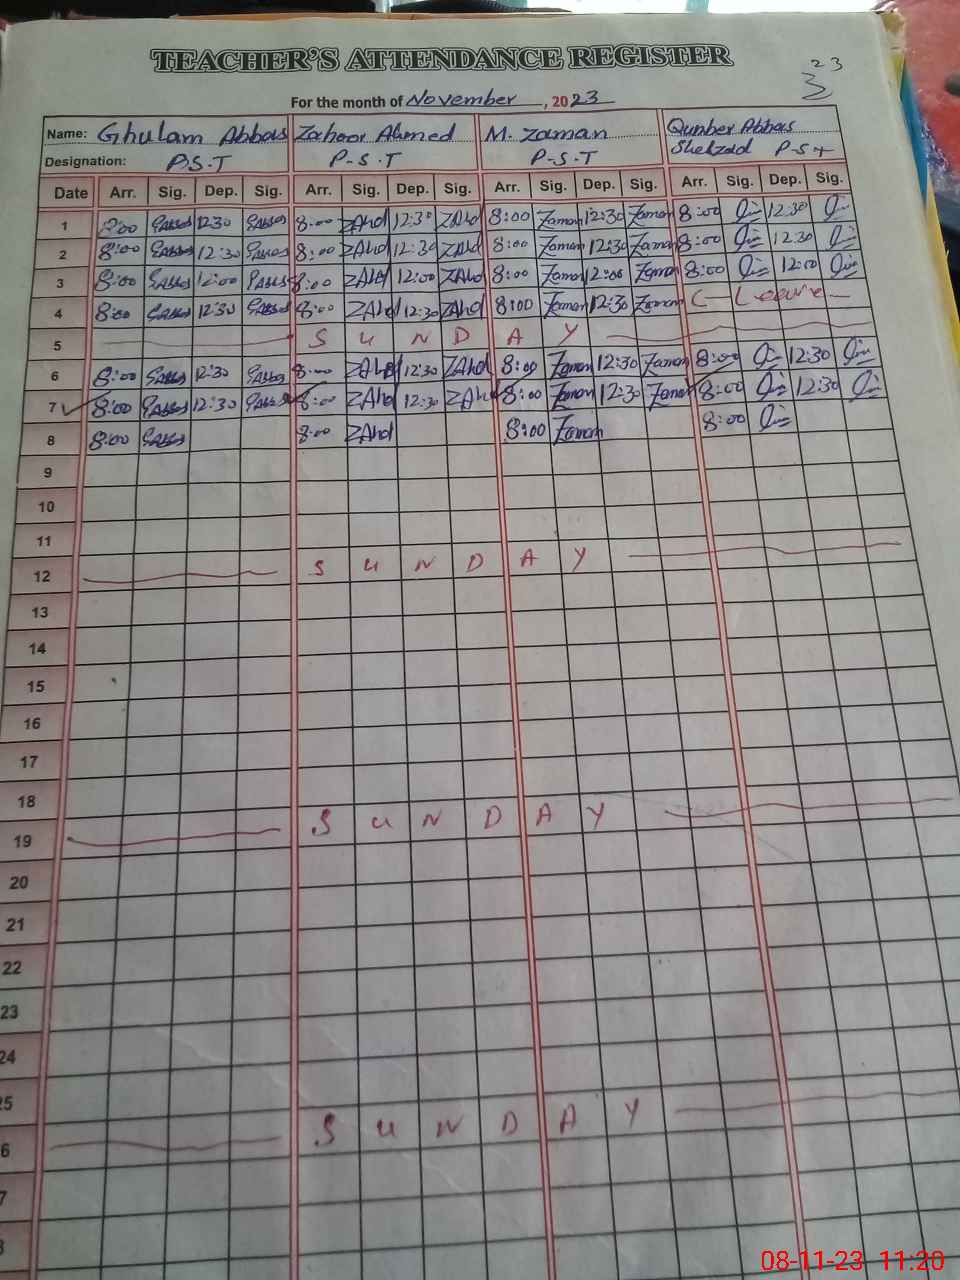 TEACHER'S ATTENDANCE REGISTER
23
3
For the month of November, 2023
Name: Ghulam Abbas Zahoor Ahmed M. Zaman Qunber Abbas Shehzad
Designation: P.S.T P-S.T P-S.T P-S-T
Date Arr. Sig. Dep. Sig. Arr. Sig. Dep. Sig. Arr. Sig. Dep. Sig. Arr. Sig. Dep. Sig.
1 8:00 12:30 8:00 ZAhd 12:30 ZAhd 8:00 Zaman 12:30 Zaman 8:00 12:30
2 8:00 12:30 8:00 ZAhd 12:30 ZAhd 8:00 Zaman 12:30 Zaman 8:00 12:30
3 8:00 12:00 8:00 ZAhd 12:00 ZAhd 8:00 Zaman 12:00 Zaman 8:00 12:00
4 8:00 12:30 8:00 ZAhd 12:30 ZAhd 8:00 Zaman 12:30 Zaman Leave
5 SUNDAY
6 8:00 12:30 8:00 ZAhd 12:30 ZAhd 8:00 Zaman 12:30 Zaman 8:00 12:30
7 8:00 12:30 8:00 ZAhd 12:30 ZAhd 8:00 Zaman 12:30 Zaman 8:00 12:30
8 8:00 8:00 ZAhd 8:00 Zaman 8:00
9
10
11
12 SUNDAY
13
14
15
16
17
18
19 SUNDAY
20
21
22
23
24
25
6 SUNDAY
7
8
08-11-23 11:20